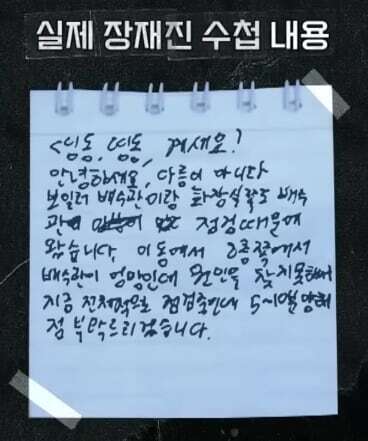 실제 장재진 수첩 내용
띵동, 띵동, 계세요?
안녕하세요, 다름이 아니라
보일러 배수관이랑 화장실쪽도 배수
관 점검때문에
왔습니다. 이동에서 2층쪽에서
배수관이 엉망인데 원인을 찾지못해서
지금 전체적으로 점검중인데 5~10분 양해
점 부탁드리겠습니다.